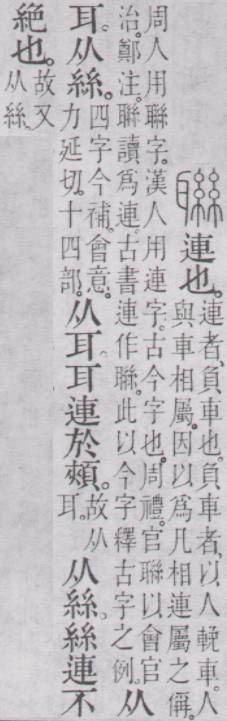 聯
連也。
連者、負車也。負車者、以人輓車。人
與車相屬。因以爲凡相連屬之偁。
周人用聯字。漢人用連字。古今字也。周禮。官聯以會官
治。鄭注。聯讀爲連。古書連作聯。此以今字釋古字之例。
从
耳从絲。
四字今補。會意。
力延切。十四部。
从耳。耳連於頰。
故从
耳。
从絲。絲連不
絕也。
故又
从絲。